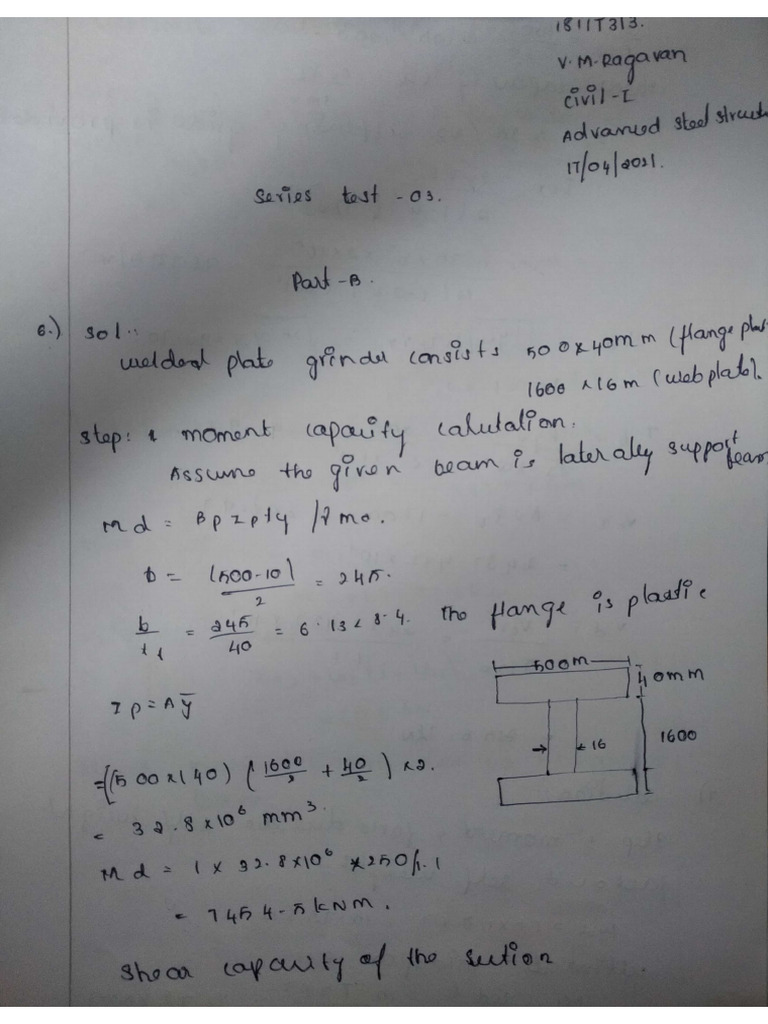 1811T313.
V.M.Ragavan
Civil-I
Advanced steel struct
17/04/2021.
Series test -03.
Part -B.
6.) Sol:.
welded plate grinder consists 500x40mm (flange plat
1600 x16m (web plate).
Step: 1 moment capacity calculation.
Assume the given beam is laterally support beam
Md = Bp zp fy /γmo.
b = (500-10)/2 = 245.
b/tf = 245/40 = 6.13 < 8.4. The flange is plastic
Zp = Aȳ
500m
40mm
16
1600
=((500x(40) (1600/2 + 40/2) x2.
= 32.8x10⁶ mm³.
Md = 1 x 32.8x10⁶ x250/1.1
= 7454.5 kNm.
Shear capacity of the section